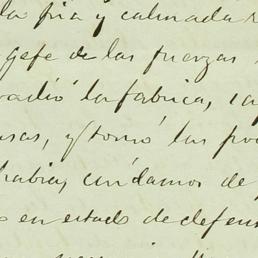 la fria y calmada
gefe de las fuerzas
la fabrica,
y tomó las
habia, cindamos de
en estado de defens